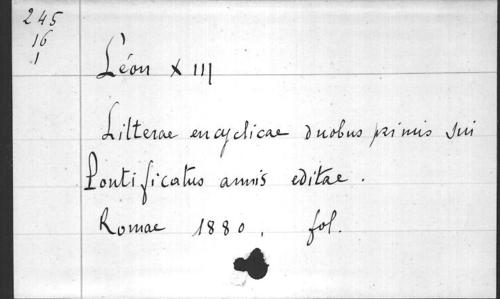 245
16
1
Léon XIII
Litterae encyclicae duobus primis sui
Pontificatus annis editae.
Romae 1880, fol.